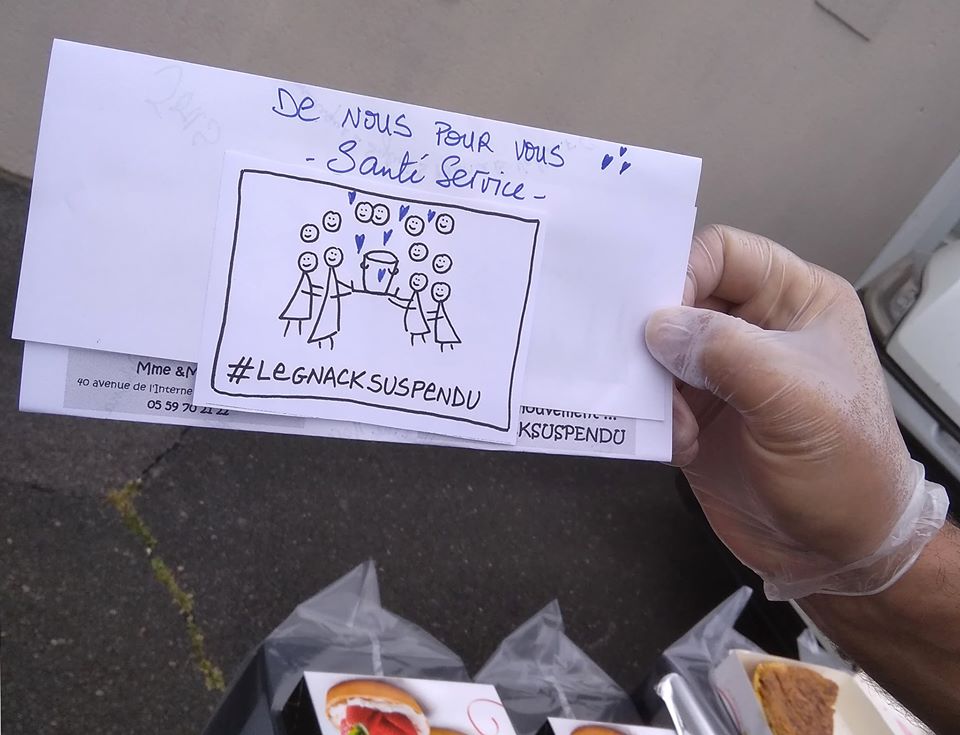 De NOUS POUR VOUS
- Santé Service -
#LeGNACKSUSPENDU
Mme &M
40 avenue de l'Interne
05 59 70 21 22
ouvement ...
KSUSPENDU